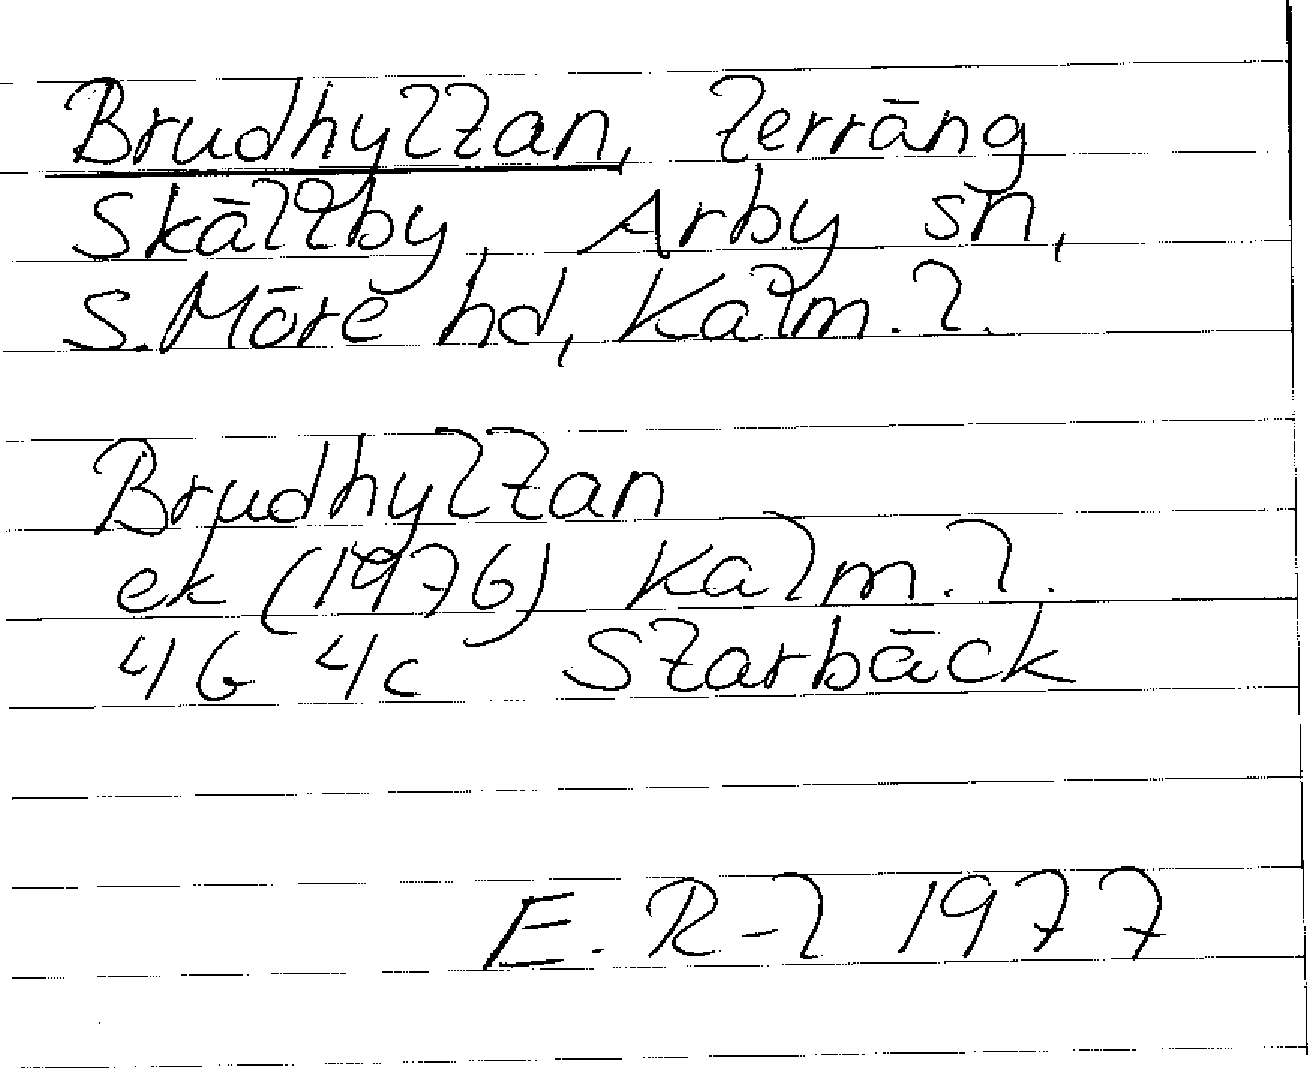 Brudhyltan, terräng
Skältby, Arby sn,
S. Möre hd, Kalm. l.
Brudhyltan
ek (1976) Kalm. l.
4G 4c Starbäck
E. R-l 1977